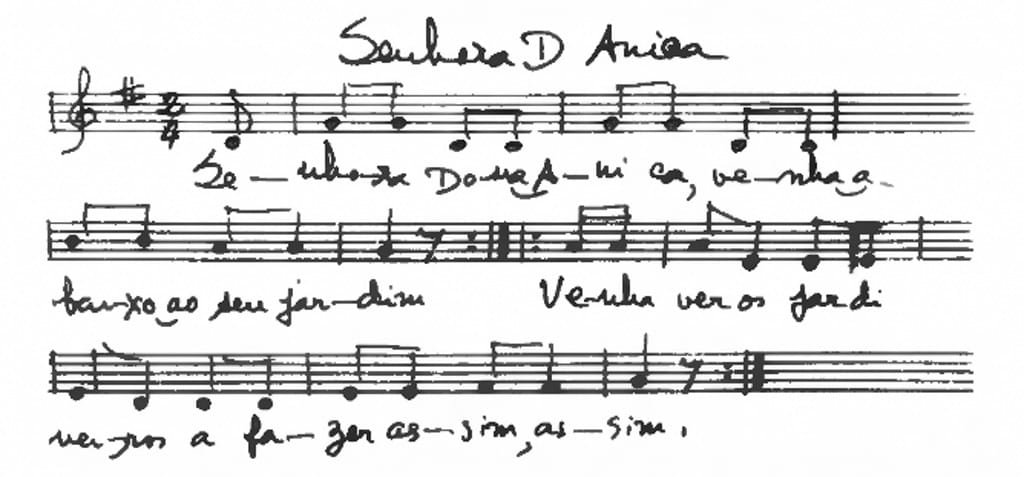 Senhora D Anica
2/4
Se-nho-ra Do-na A-ni ca, ve-nha a-
bai-xo ao seu jar-dim Ve-nha ver os jar di
nei-ros a fa-zer as-sim, as-sim.